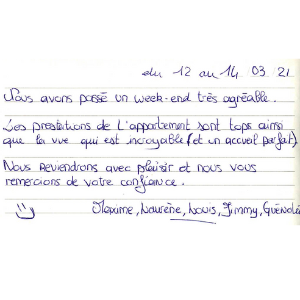 du 12 au 14 03 21
Nous avons passé un week-end très agréable.
Les prestations de l'appartement sont tops ainsi
que la vue qui est incroyable (et un accueil parfait).
Nous reviendrons avec plaisir et nous vous
remercions de votre confiance.
Maxime, Laurène, Louis, Jimmy,